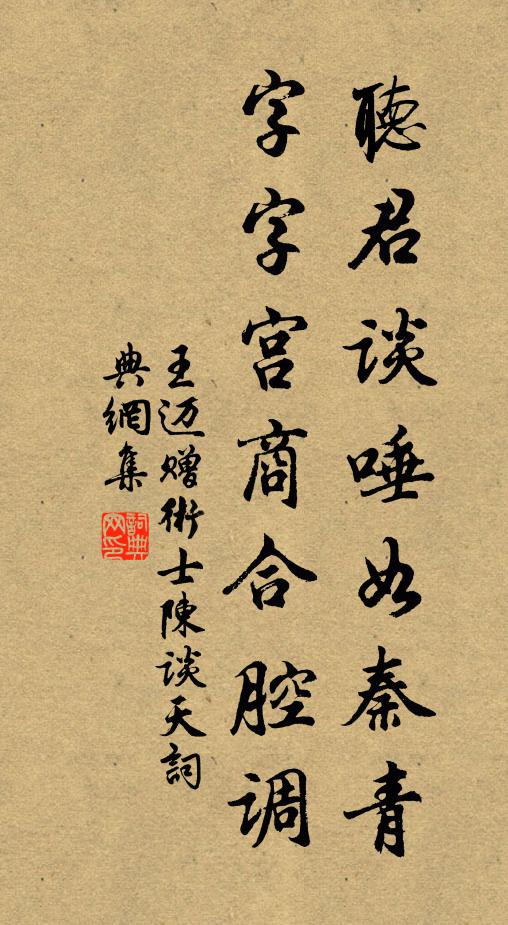 聴君谈唾如秦青
字字宫商合腔调
王迈赠術士陳谈天詞
典網集
詞典网印